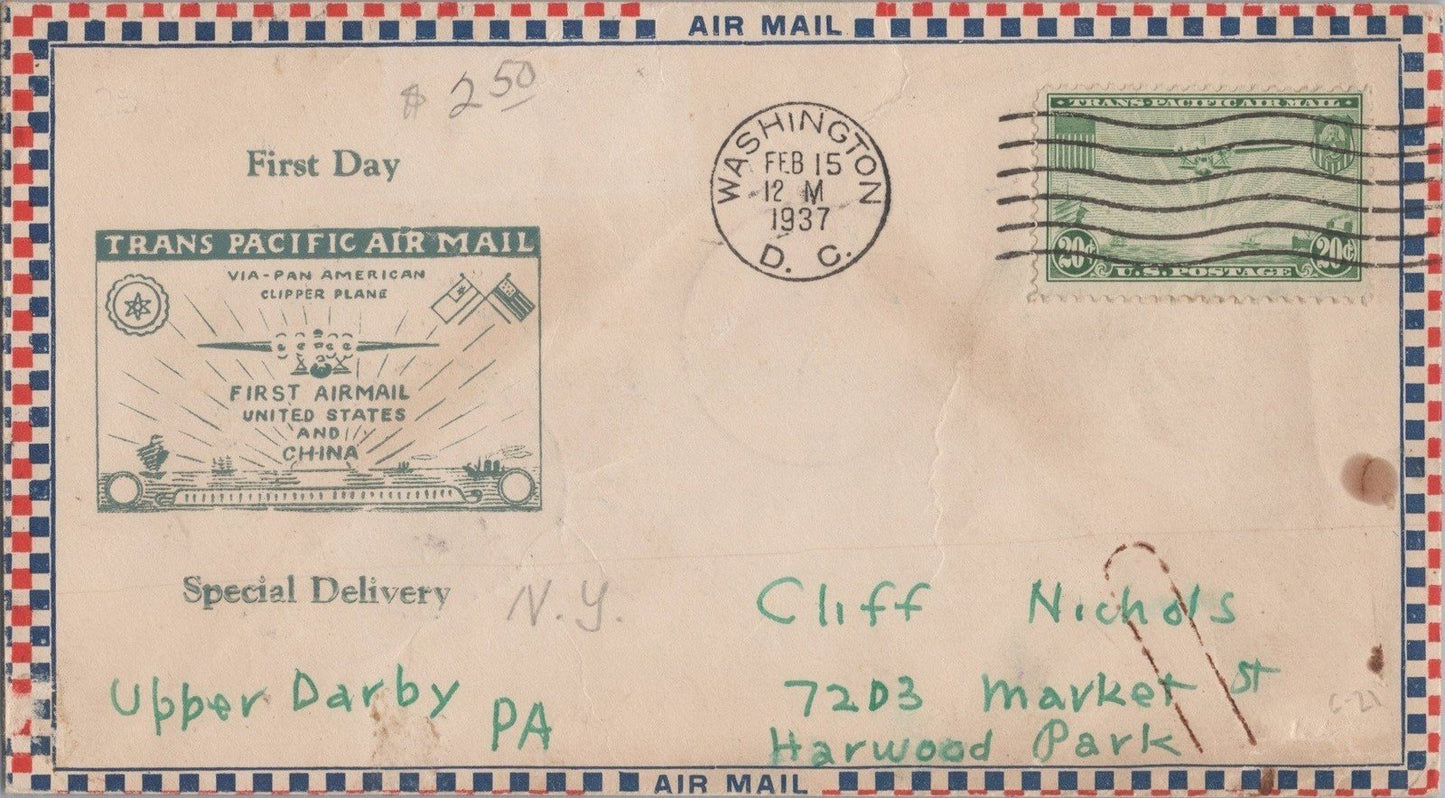 AIR MAIL
$ 2 50
First Day
TRANS PACIFIC AIR MAIL
VIA-PAN AMERICAN
CLIPPER PLANE
FIRST AIRMAIL
UNITED STATES
AND
CHINA
Special Delivery
N.Y.
Upper Darby
PA
WASHINGTON
FEB 15
12 M
1937
D. C.
TRANS-PACIFIC AIR MAIL
20¢ 20¢
U.S. POSTAGE
Cliff Nichols
7203 Market St
Harwood Park
C-21
AIR MAIL